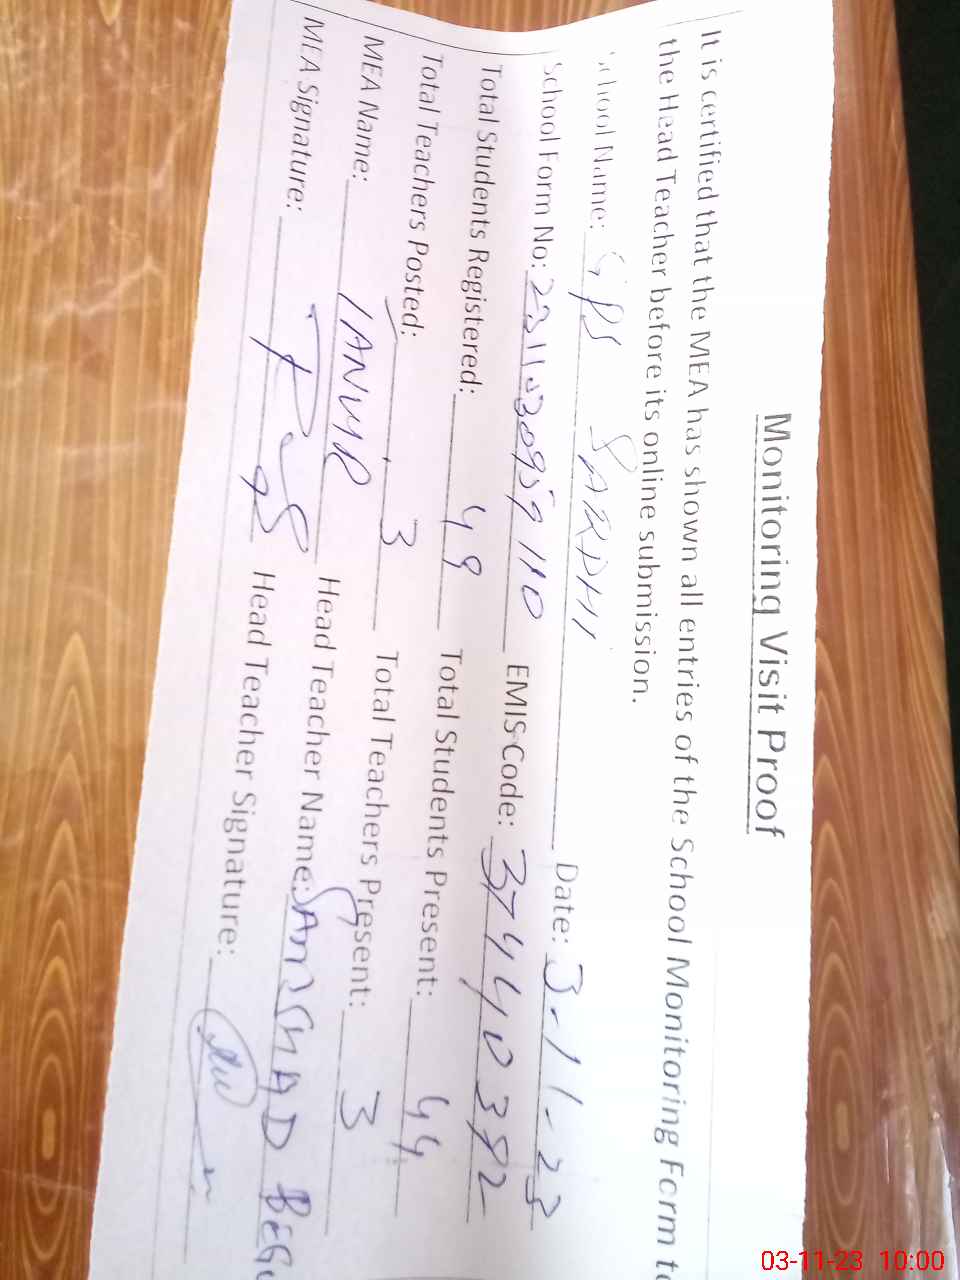 Monitoring Visit Proof
It is certified that the MEA has shown all entries of the School Monitoring Form to
the Head Teacher before its online submission.
School Name: GPS SARDHI Date: 3-11-23
School Form No: EMIS Code:
Total Students Registered: 49 Total Students Present: 44
Total Teachers Posted: 3 Total Teachers Present: 3
MEA Name: TANVIR Head Teacher Name: SAMSHAD BEGU
MEA Signature: Head Teacher Signature:
03-11-23 10:00